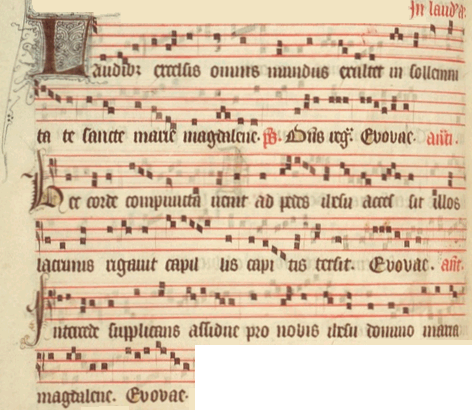 In laud'
Laudibꝫ excelsis omnis mundus exultet in sollemni
ta te sancte marie magdalene. ps. Dn̄s reg. Evovae. an̄t.
Hec corde compuncta uenit ad pedes ihesu accessit illos
lacrimis rigauit capil lis capi tis tersit. Evovae. an̄t.
Intercede supplicans assidue pro nobis ihesu domino maria
magdalene. Evovae.